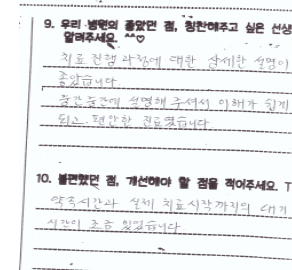 9. 우리 병원의 좋았던 점, 칭찬해주고 싶은 선생
알려주세요. ^^♡
치료 진행 과정에 대한 상세한 설명이
좋았습니다
중간중간에 설명해 주셔서 이해가 쉽게
되고 편안한 진료였습니다.
10. 불편했던 점, 개선해야 할 점을 적어주세요. T
약속시간과 실제 치료시작까지의 대기
시간이 조금 있었습니다.